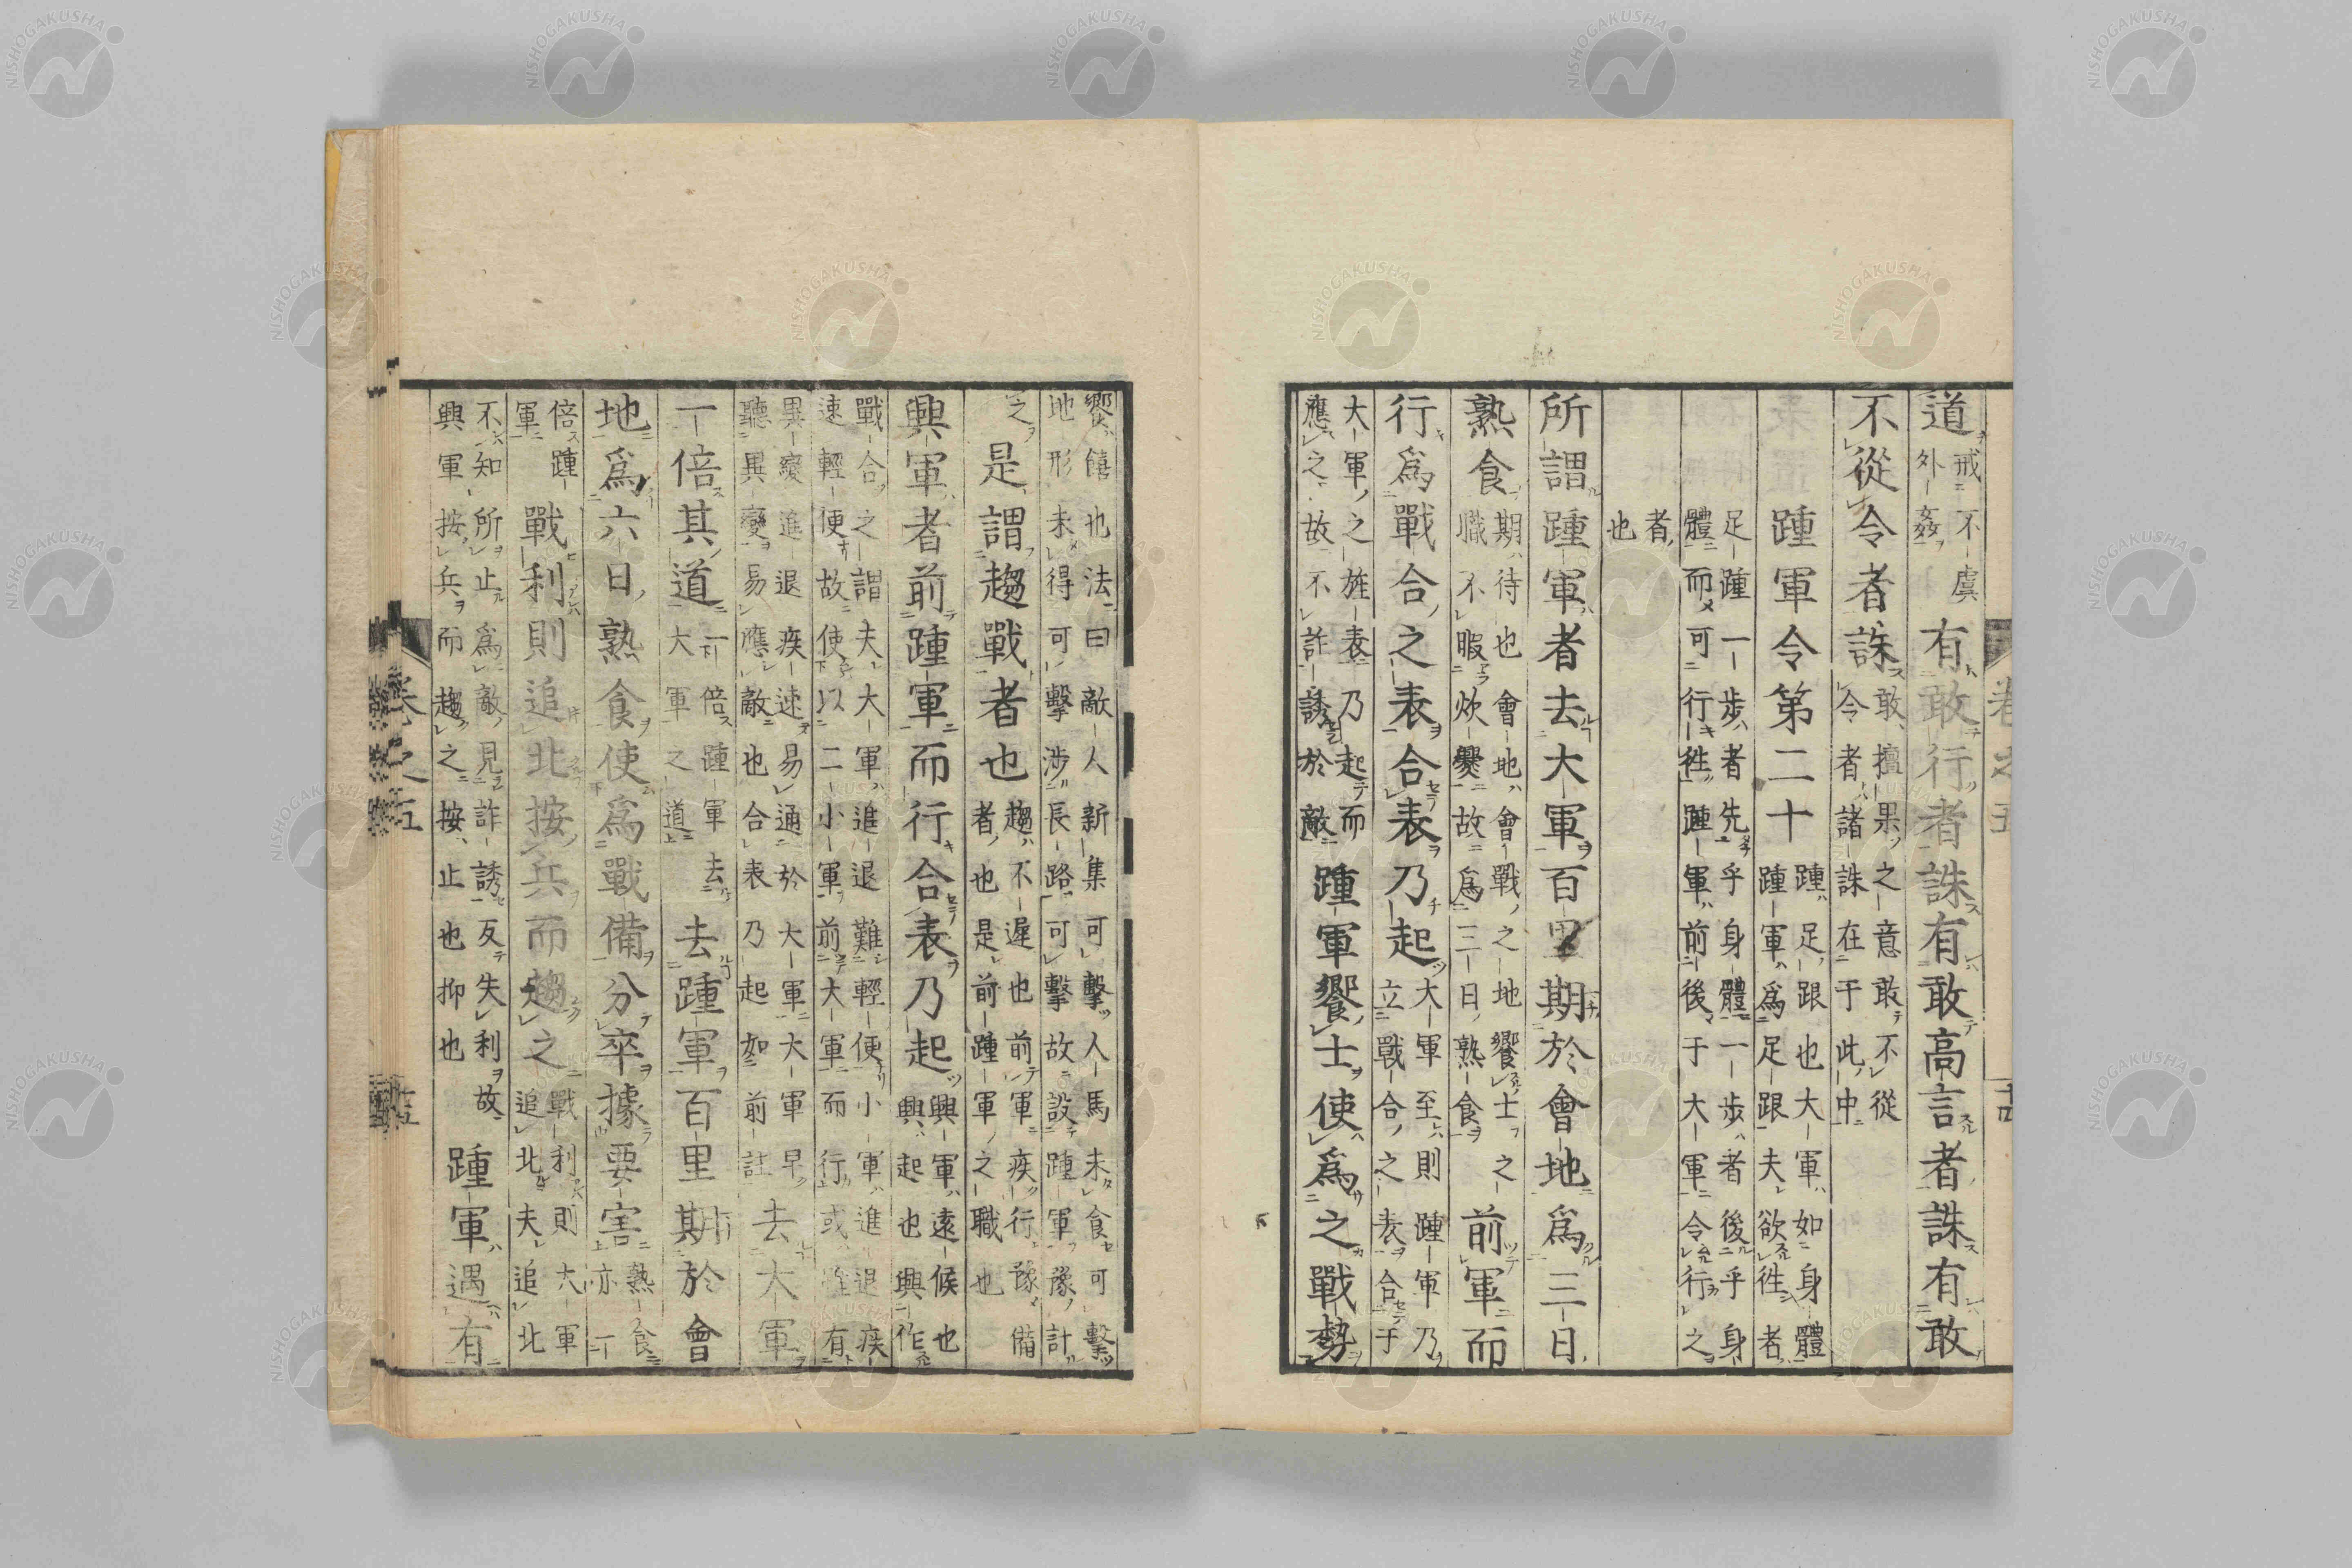 卷之五
十四
道
戒不虞
外姦
有敢行者誅有敢高言者誅有敢
不從令者誅
敢擅果之意敢不從
令者諸誅在于此中
踵軍令第二十
踵足跟也大軍如身體
踵軍爲足跟夫欲徃者
足踵一步者先乎身體一步者後乎身
體而可行徃踵軍前後于大軍令行之
者
也
所謂踵軍者去大軍百里期於會地爲三日
熟食
期待也會地會戰之地饗士之
職不暇炊爨故爲三日熟食
前軍而
行爲戰合之表合表乃起
大軍至則踵軍乃
立戰合之表合于
大軍之旌表乃起而
應之故不詐誘於敵
踵軍饗士使爲之戰勢
饗饎也法曰敵人新集可擊人馬未食可擊
地形未得可擊涉長路可擊故設踵軍豫計
之
是謂趨戰者也
趨不遲也前軍疾行豫備
者也是前踵軍之職也
興軍者前踵軍而行合表乃起
興軍遠候也
興起也興作
戰合之謂夫大軍進退難輕便小軍進退疾
速輕便故使以二小軍前大軍而行或雖有
異變進退疾速易通於大軍大軍早
聽異變易應敵也合表乃起如前註
去大軍
一倍其道
一倍踵軍去
大軍之道
去踵軍百里期於會
地爲六日熟食使爲戰備分卒據要害
熟食
亦一
倍踵
軍
戰利則追北按兵而趨之
戰利則大軍
追北夫追北
不知所止爲敵見詐誘反失利故
興軍按兵而趨之按止也抑也
踵軍遇有
卷之五